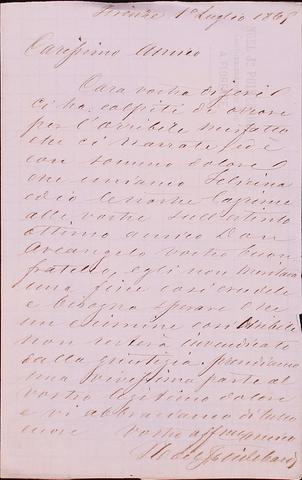 Firenze 1° Luglio 186
Carissimo Amico
Cara vostra di jeri
ci ha colpiti di orrore
per l'orribile misfatto
che ci narrate ed è
con sommo dolore
che uniamo
ed io le nostre lagrime
alle vostre sull'estinto
ottimo amico Don
Arcangelo vostro buon
fratello, egli non meritava
una fine così crudele
e bisogna sperare che
un crimine così orribile
non resterà invendicato
dalla giustizia. prendiamo
una vivissima parte al
vostro legittimo dolore
e vi abbracciamo di tutto
cuore vostro affmo amico